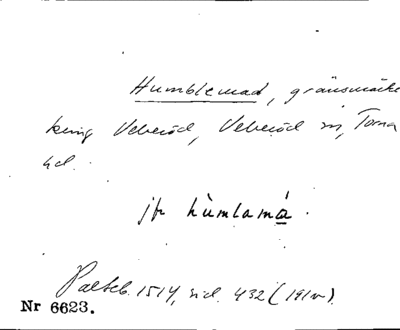 Humblemad, gränsmärke
kring Veberöd, Veberöd sn, Torna
hd.
jfr hùmlamá.
Palteb. 1514, sid. 432 (191v).
Nr 6623.